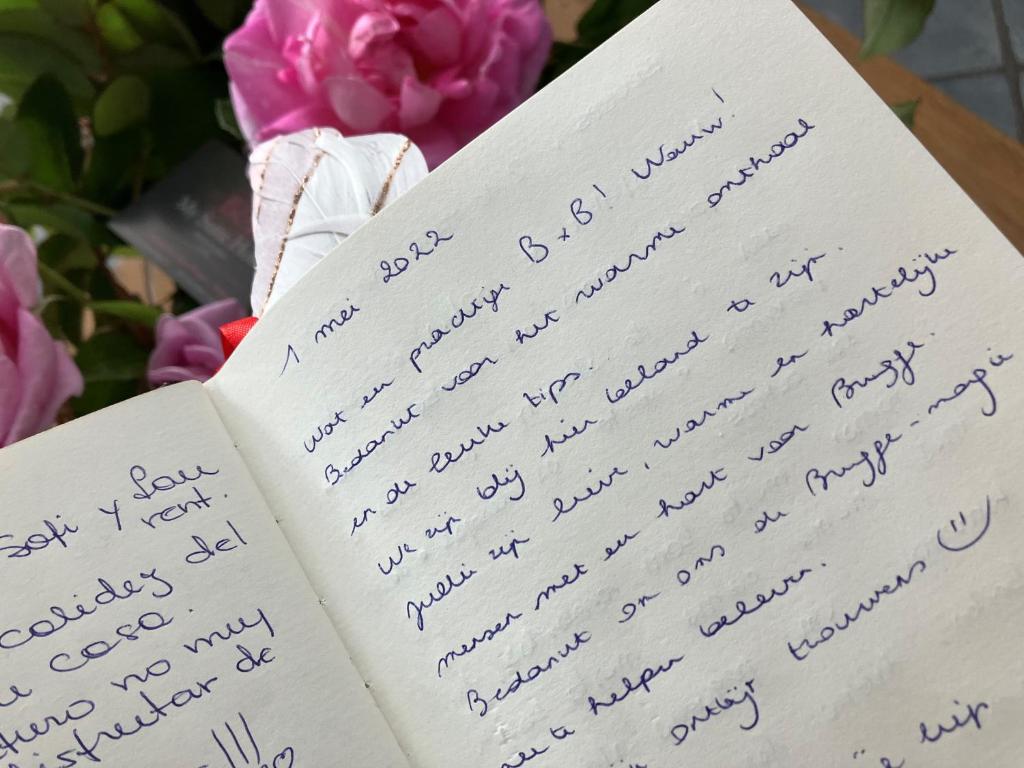 Sofi y Lau
rent.
calidez del
casa.
no muy
disfrutar de
!!!
1 mei 2022
Wat een prachtige B&B! Wauw!
Bedankt voor het warme onthaal
en de leuke tips.
We zijn blij hier beland te zijn.
Jullie zijn lieve, warme en hartelijke
mensen met een hart voor Brugge.
Bedankt om ons de Brugge-magie
te helpen beleven.
ontbijt trouwens